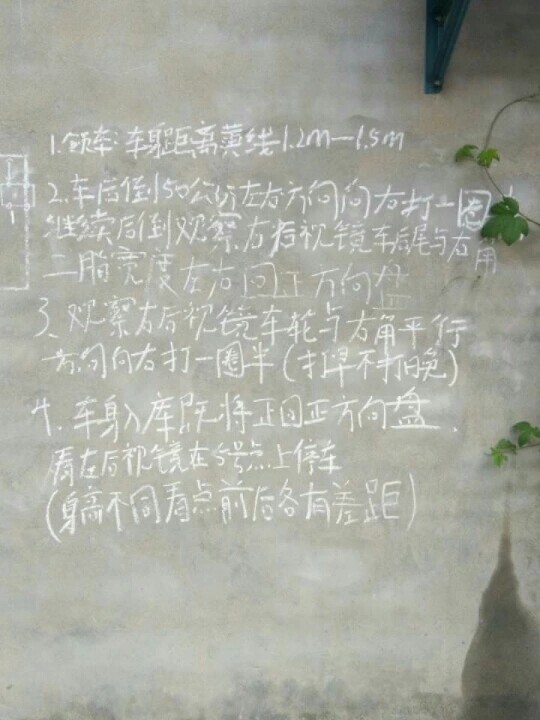 1.领车:车身距离黄线1.2m—1.5m
2.车后倒50公分左右方向向右打一圈
继续后倒观察右后视镜车后尾与右角
二脂宽度左右回正方向盘
3、观察右后视镜车轮与右角平行
方向向右打一圈半(打早不打晚)
4.车身入库既将正回正方向盘.
看左后视镜在5号点上停车
(身高不同看点前后各有差距)